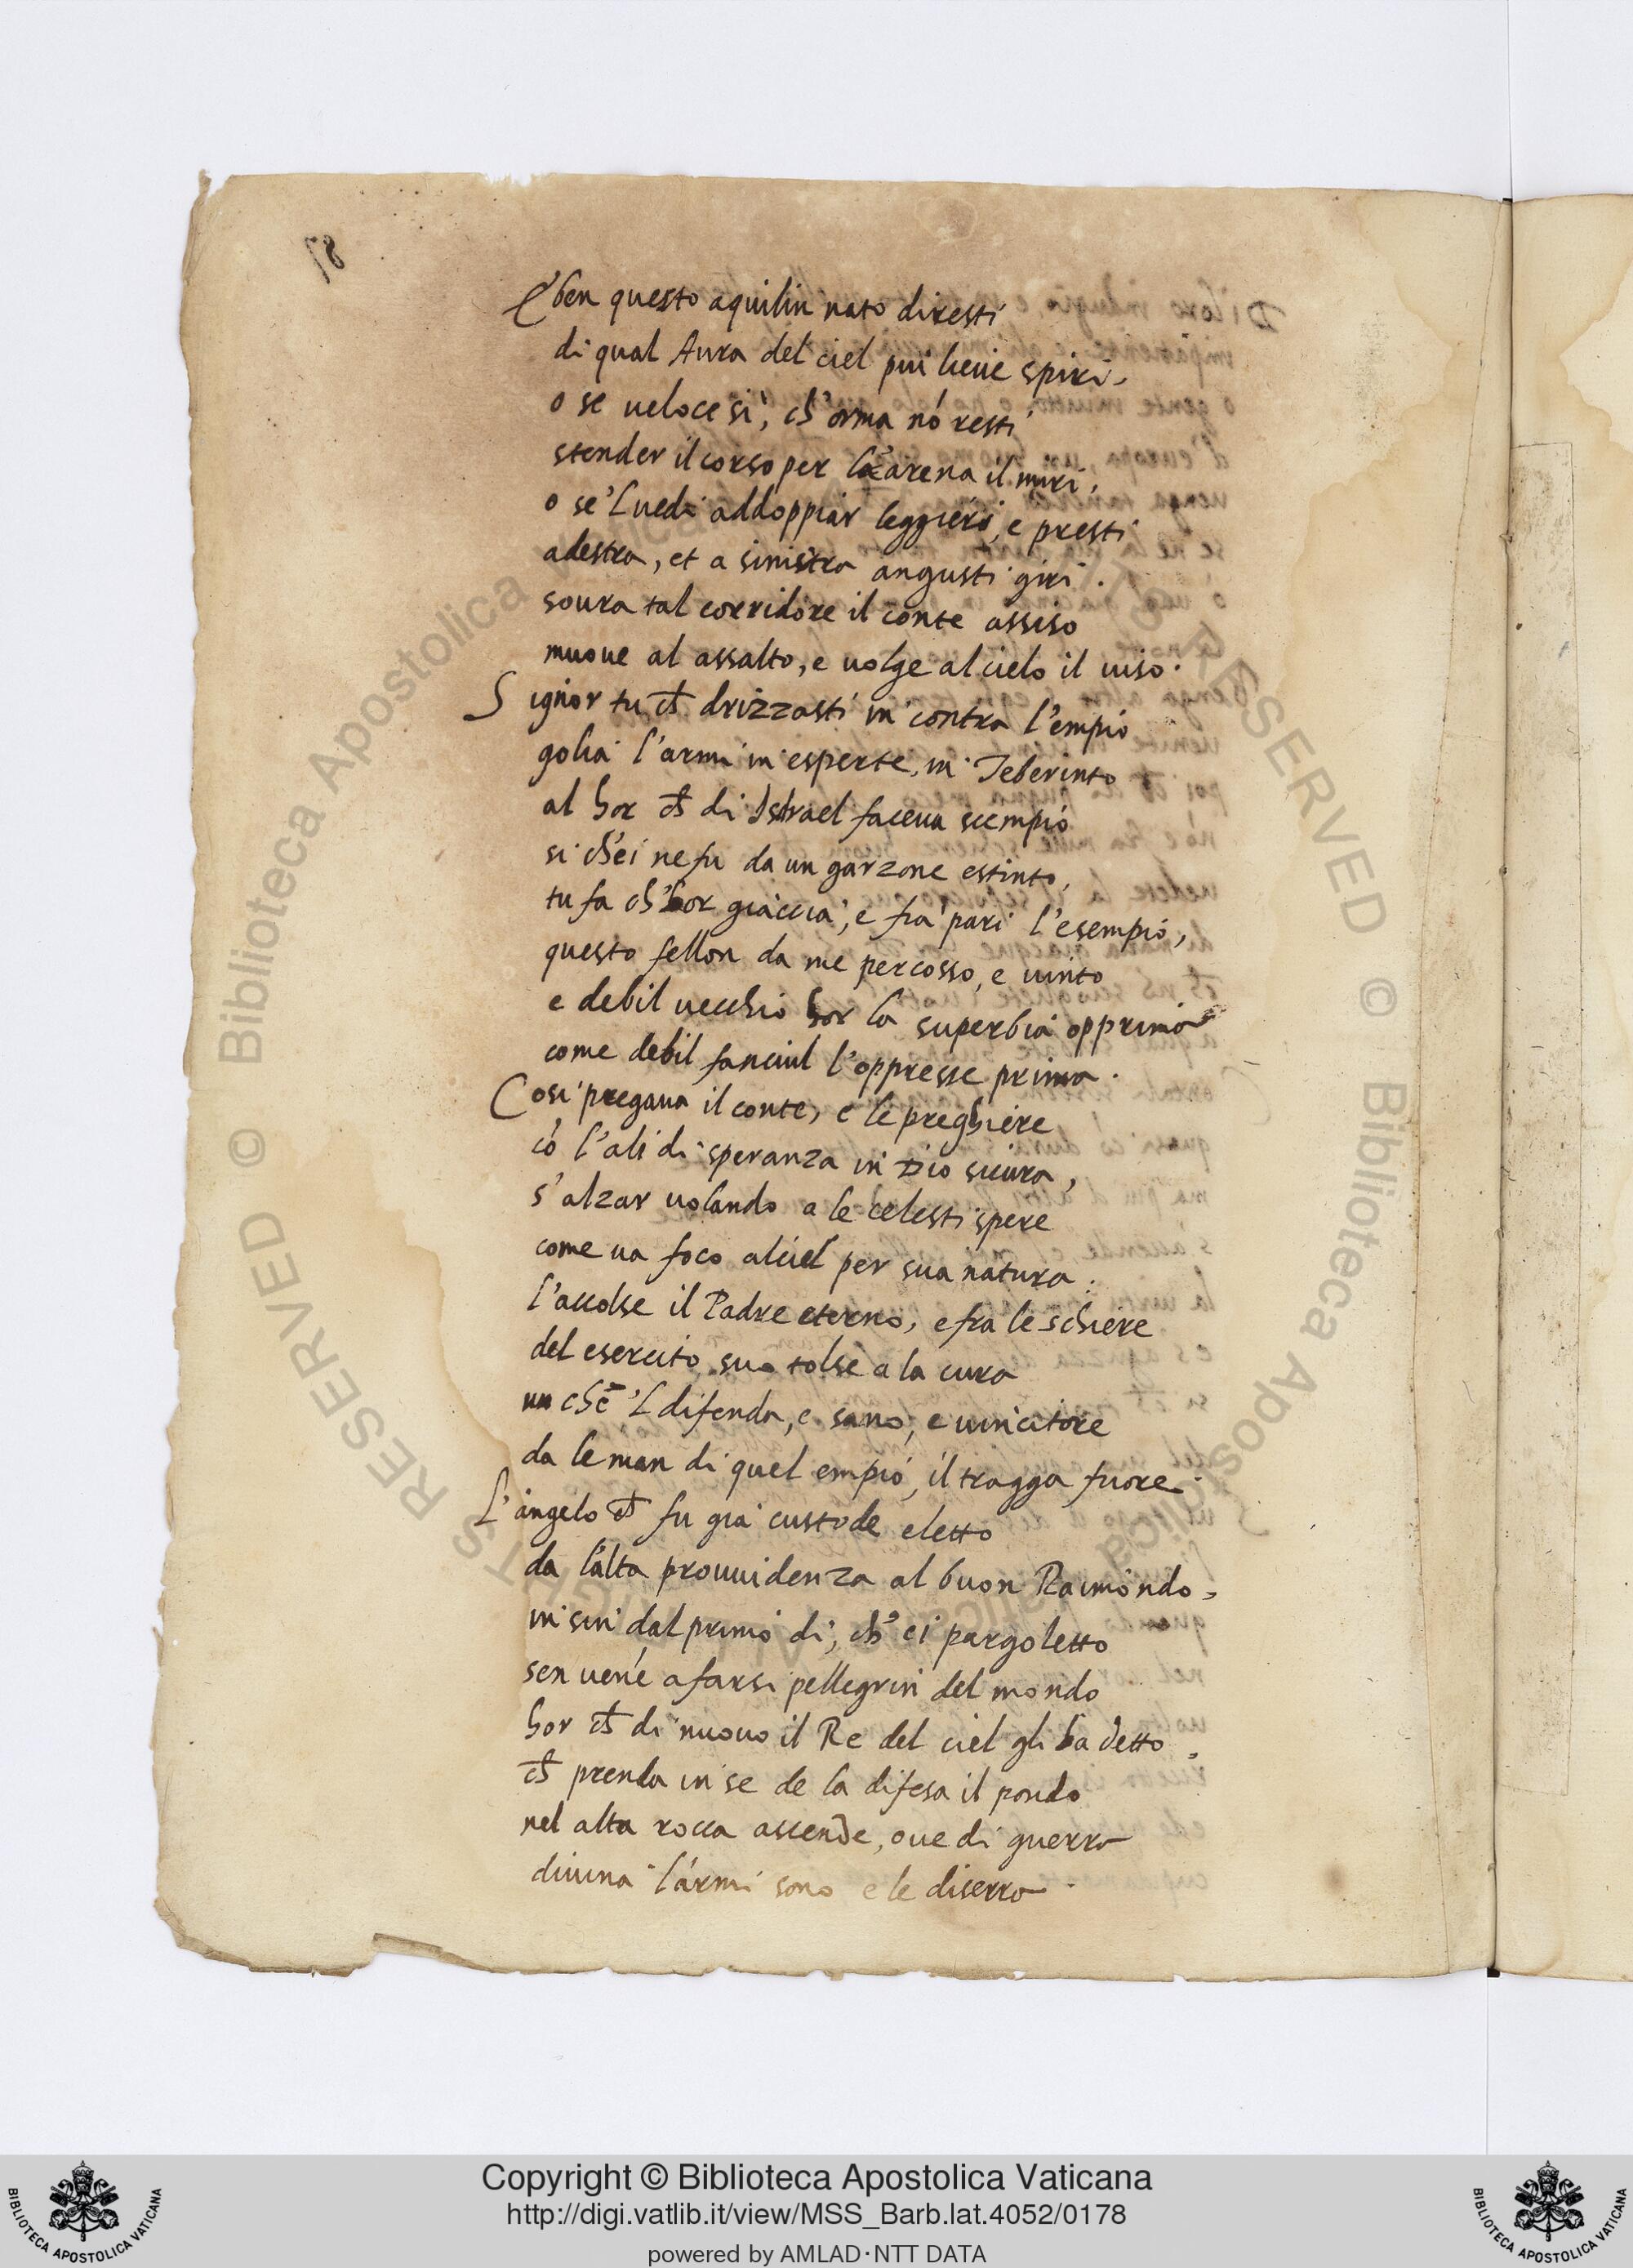 E' ben questo aquilin nato diresti
di qual Aura del ciel piu lieue spiri,
o se ueloce si, ch'orma nó resti
stender il corso per l'arena il miri,
o se'l uedi addoppiar leggieri, e presti
a destra, et a sinistra angusti giri.
soura tal corridore il conte assiso
muoue al assalto, e uolge al cielo il uiso.
Signor tu ch̄ drizzasti in contra l'empio
golia l'armi in esperte, in Teberinto
al hor ch̄ di Istrael faceua scempio
si ch'ei ne fu da un garzone estinto,
tu fa ch'hor giaccia, e fia pari l'esempio,
questo fellon da me percosso, e uinto
e debil uecchio hor la superbia opprima
come debil fanciul l'oppresse prima.
Cosi pregaua il conte, e le preghiere
có l'ali di speranza in Dio sicura,
s'alzar uolando a le celesti spere
come ua foco al ciel per sua natura.
l'accolse il Padre eterno, e fra le schiere
del esercito suo tolse a la cura
un che'l difenda, e sano, e uincitore
da le man di quel empio, il tragga fuore
L'angelo ch̄ fu gia custode eletto
da l'alta prouuidenza al buon Raimondo,
in sin dal primo di, ch'ei pargoletto
sen uené a farsi pellegrin del mondo
hor ch̄ di nuouo il Re del ciel gli ha detto,
ch̄ prenda in se de la difesa il pondo
nel alta rocca ascende, oue di guerra
diuina l'armi sono e le diserra.
87
Copyright © Biblioteca Apostolica Vaticana
http://digi.vatlib.it/view/MSS_Barb.lat.4052/0178
powered by AMLAD·NTT DATA
BIBLIOTECA APOSTOLICA VATICANA
BIBLIOTECA APOSTOLICA VATICANA